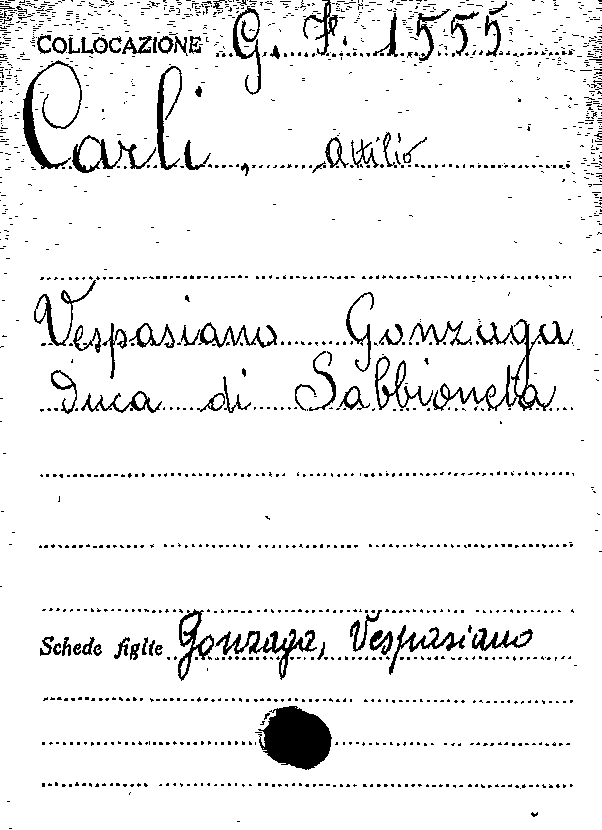 COLLOCAZIONE G. F. 1555
Carli, Attilio
Vespasiano Gonzaga
Duca di Sabbioneta
Schede figlie Gonzaga, Vespasiano